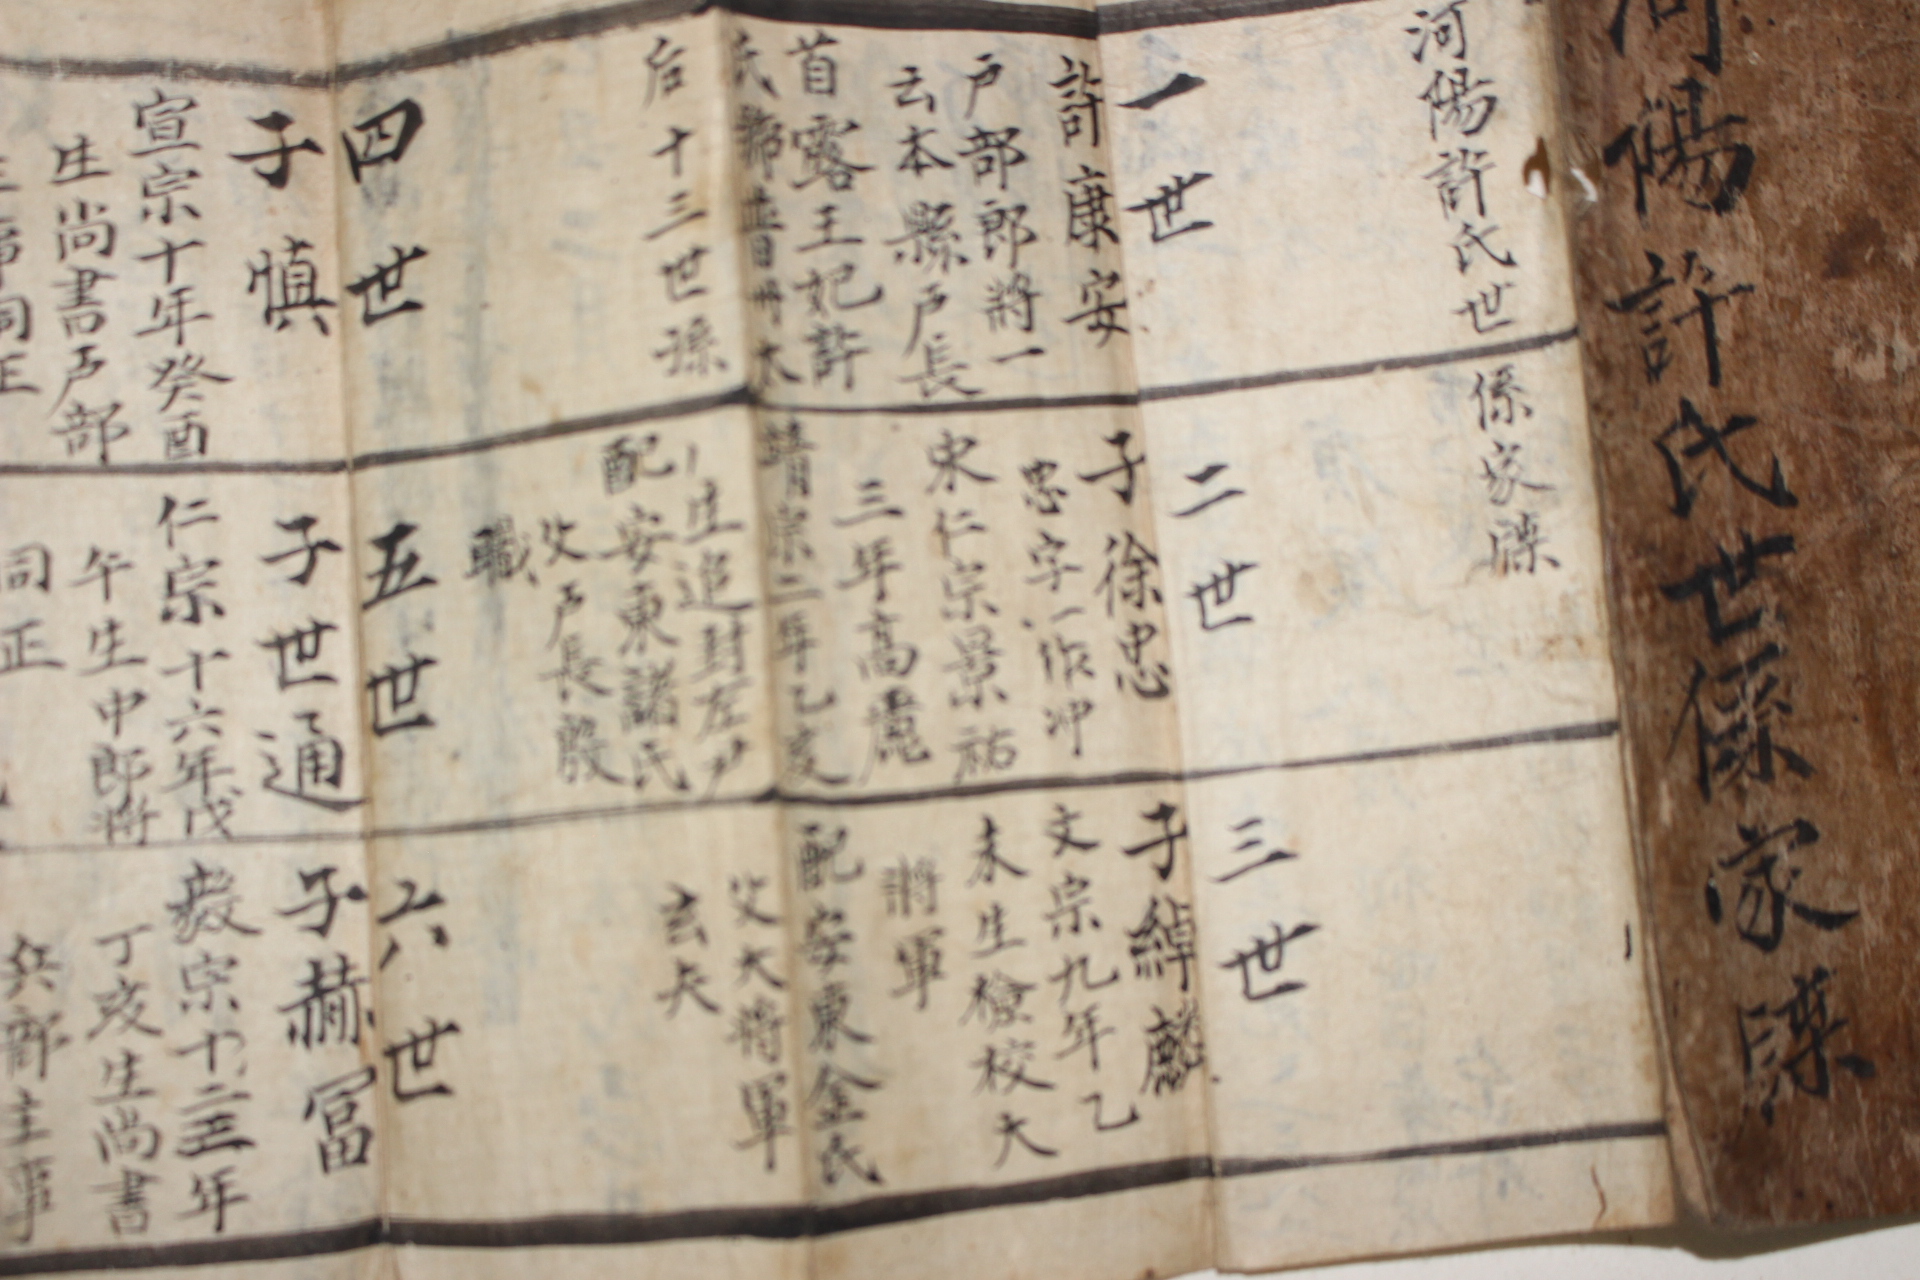 陽許氏世係家牒
河陽許氏世
係家牒
一世
許康安
戶部郎將一
云本縣戶長
首露王妃許
氏
后十三世孫
二世
子徐忠
忠字一作冲
宋仁宗景祐
三年高麗
靖宗二年乙亥
生追封左尹
配安東諸氏
父戶長殷
職
三世
子綽麟
文宗九年乙
未生檢校大
將軍
配安東金氏
父大將軍
玄夫
四世
子慎
宣宗十年癸酉
生尚書戶部
同正
五世
子世通
仁宗十六年戊
午生中郎將
同正
六世
子赫冨
毅宗十二三年
丁亥生尚書
兵部主事